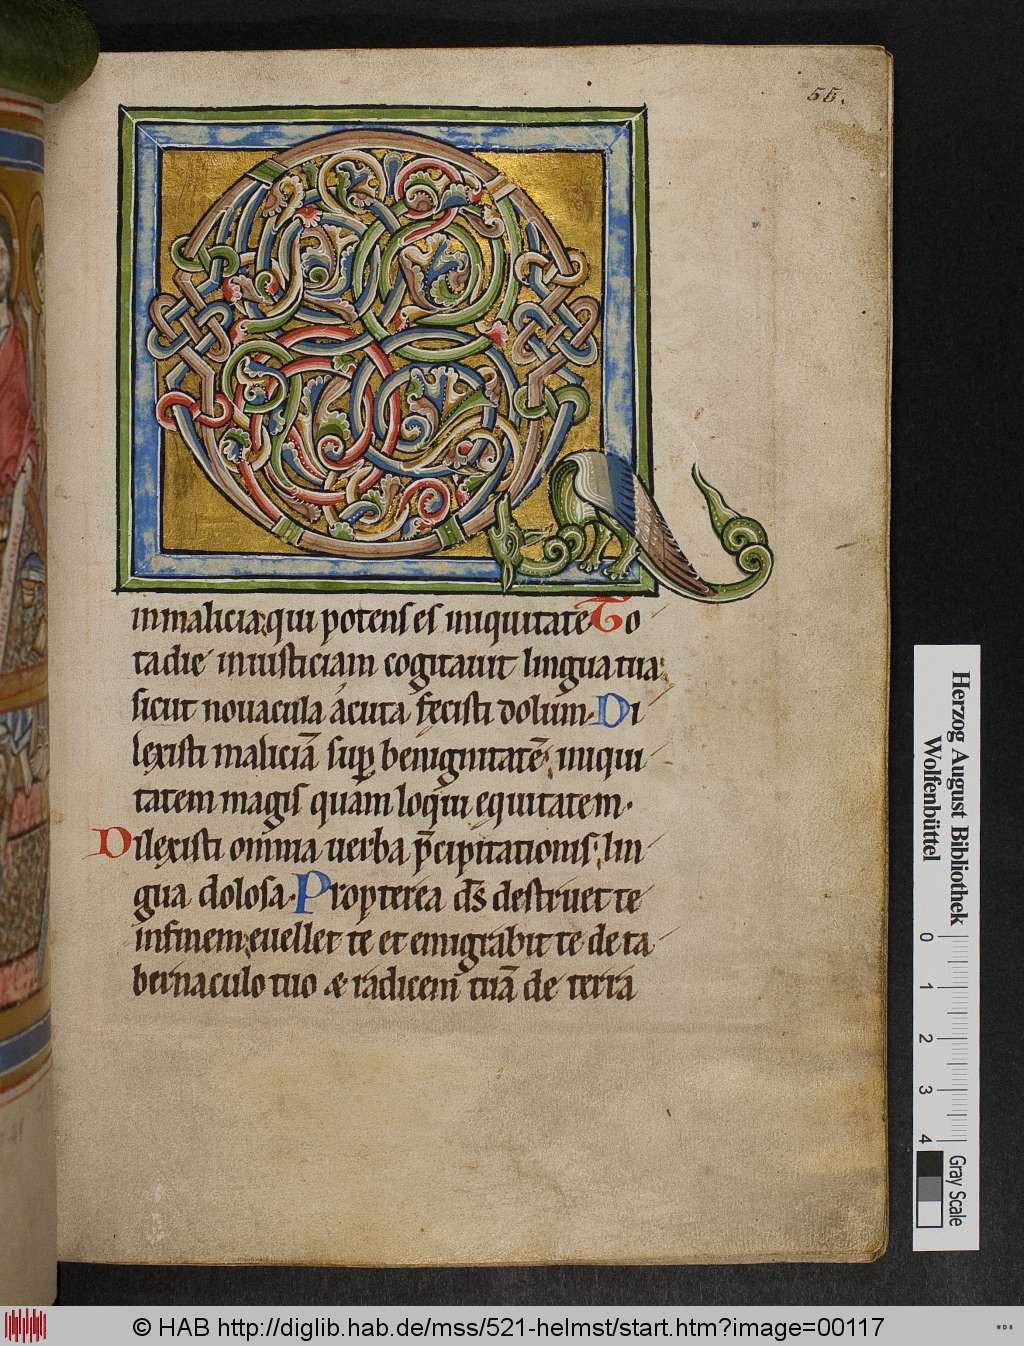 55.
Q
in malicia: qui potens es iniquitate To
ta die iniusticiam cogitauit lingua tua:
sicut nouacula acuta fęcisti dolum. Di
lexisti maliciā sup̱ benignitatē: iniqui
tatem magis quam loqui equitatem.
Dilexisti omnia uerba p̄cipitationis: lin
gua dolosa. Prop̱terea d̄s destruet te
infinem: euellet te et emigrabit te de ta
bernaculo tuo & radicem tuā de terra
Herzog August Bibliothek
Wolfenbüttel
0 1 2 3 4
Gray Scale
© HAB http://diglib.hab.de/mss/521-helmst/start.htm?image=00117